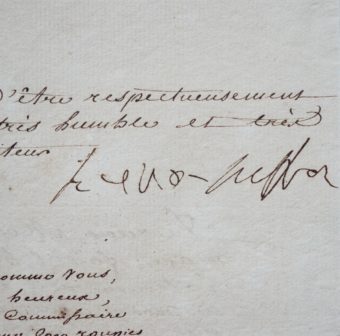 d'être respectueusement
très humble et très
iteur
comme vous,
heureux,
Commissaire